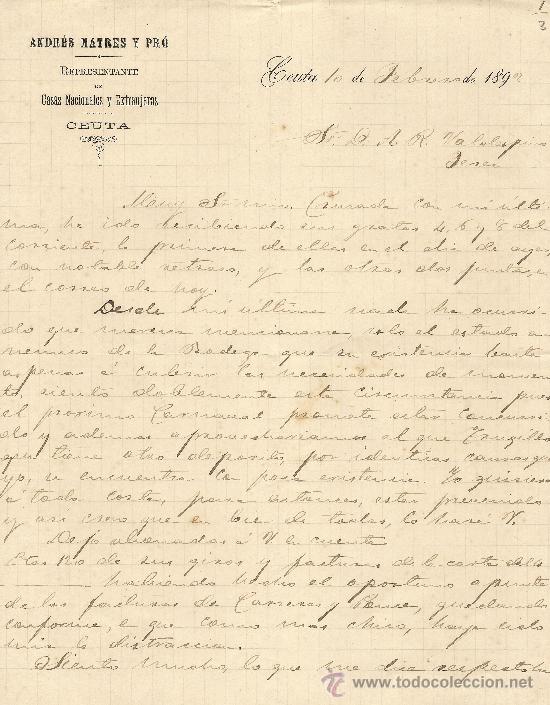 1/3
ANDRÉS MATRES Y PRÓ
REPRESENTANTE
DE
Casas Nacionales y Extranjeras
CEUTA
Ceuta 10 de Febrero de 1892
Sr. D. A. R. Valdespino
Jerez
Muy Sr. mio: Cruzada con mi ulti
ma, he ido recibiendo sus gratas 4, 6 y 8 del
corriente, la primera de ellas en el dia de ayer,
con notable retraso, y las otras dos juntas, en
el correo de hoy.
Desde mi ultima nada ha ocurri
do que merezca mencionarse, solo el estado a
nemico de la Bodega que su existencia basta
apenas á cubrir las necesidades de momen
to, siento doblemente esta circunstancia pues
el próximo Carnaval promete estar concurri
do y ademas aprovechariamos el que Trugillo
que tiene otro deposito, por identicas causas que
yo, se encuentra con poca existencia. Yo quisiera
á toda costa, para entonces, estar prevenido
y asi creo que en bien de todos, lo hará V.
Dejo abonadas á V. en cuenta
Ptas de sus giros y facturas de la carta del
Habiendo hecho el oportuno apunte
de las facturas de Carreras y quedando
conforme, e que como mas chico, haya sido
mia la distraccion.
Siento mucho, lo que me dice respecto la
todocoleccion
www.todocoleccion.net